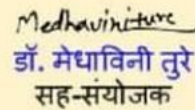 Medhavini ture
डॉ. मेधाविनी तुरे
सह-संयोजक